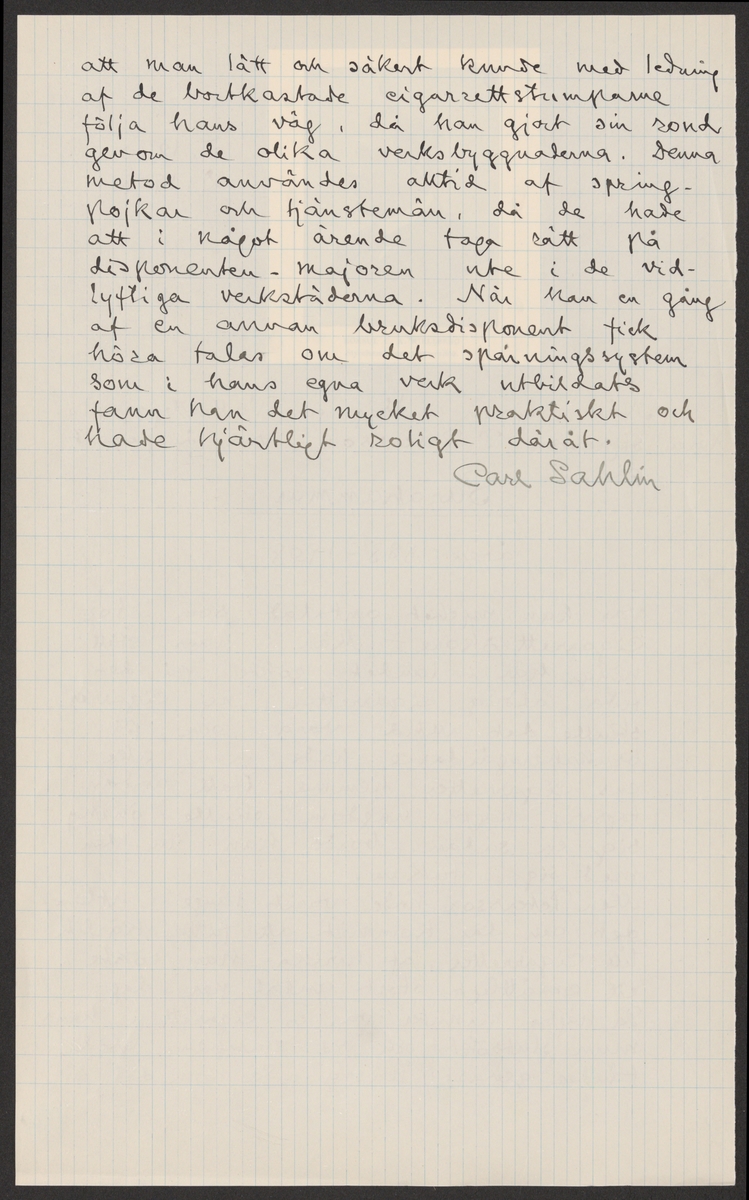 att man lätt och säkert kunde med ledning
af de bortkastade cigarrettstumparne
följa hans väg, då han gjort sin rond
genom de olika verksbyggnaderna. Denna
metod användes alltid af spring-
pojkar och tjänstemän, då de hade
att i något ärende taga rätt på
disponenten-majoren ute i de vid-
lyftiga verkstäderna. När han en gång
af en annan bruksdisponent fick
höra talas om det spårningssystem
som i hans egna verk utbildats
fann han det mycket praktiskt och
hade hjärtligt roligt däråt.
Carl Sahlin